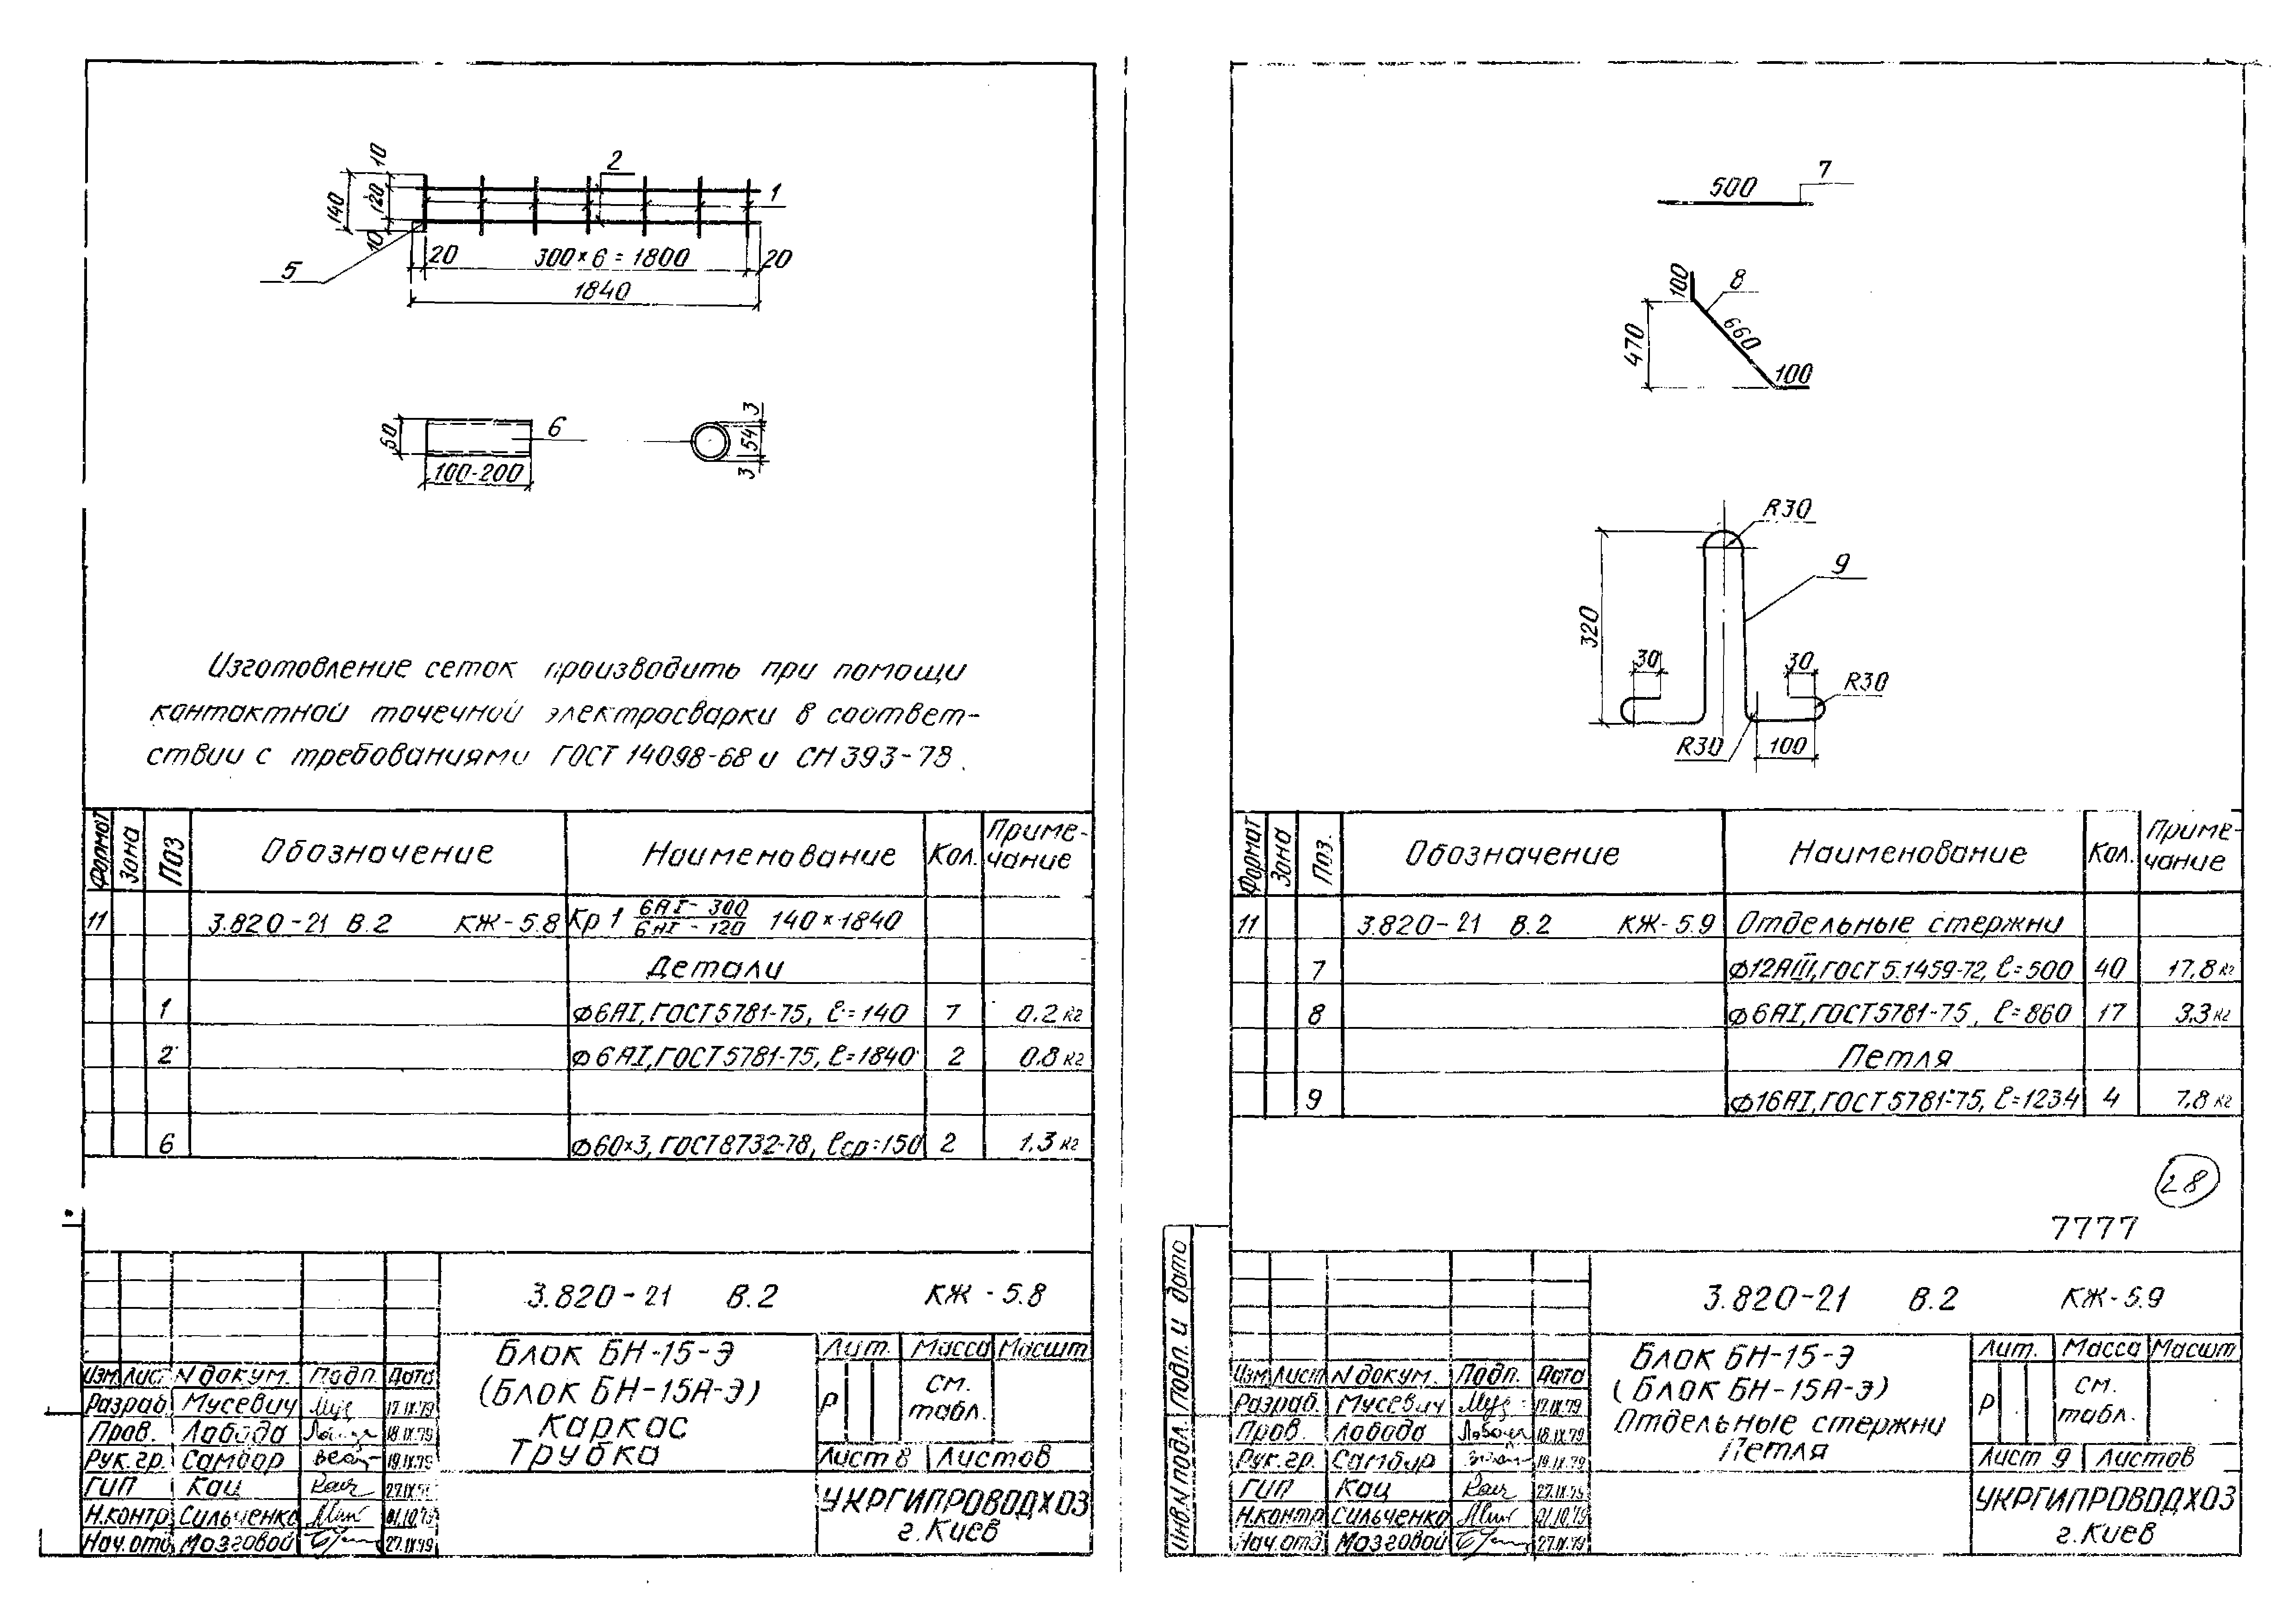 10
120
140
10
2
1
5
20
300×6=1800
20
1840
60
6
100-200
3
54
3
Изготовление сеток производить при помощи
контактной точечной электросварки в соответ-
ствии с требованиями ГОСТ 14098-68 и СН 393-78.
Формат Зона Поз Обозначение Наименование Кол. Приме-
чание
11 3.820-21 В.2 КЖ-5.8 Кр 1 6АI-300/6АI-120 140×1840
Детали
1 ϕ6АI, ГОСТ 5781-75, ℓ=140 7 0.2 кг
2 ϕ6АI, ГОСТ 5781-75, ℓ=1840 2 0.8 кг
6 ϕ60×3, ГОСТ 8732-78, ℓср=150 2 1.3 кг
3.820-21 В.2 КЖ-5.8
Блок БН-15-Э
(Блок БН-15А-Э)
Каркас
Трубка
Лит. Масса Масшт
Р см.
табл.
Лист 8 Листов
УКРГИПРОВОДХОЗ
г. Киев
Изм Лист N докум. Подп. Дата
Разраб. Мусевич 17.IX.79
Пров. Лабада 18.IX.79
Рук.гр. Самбор 19.IX.79
ГИП Кац
Н.контр Сильченко 01.10.79
Нач.отд Мозговой 27.IX.79
500
7
100
8
470
660
100
R30
320
9
30
30
R30
R30
100
Формат Зона Поз. Обозначение Наименование Кол. Приме-
чание
11 3.820-21 В.2 КЖ-5.9 Отдельные стержни
7 ϕ12АIII, ГОСТ 5.1459-72, ℓ=500 40 17,8 кг
8 ϕ6АI, ГОСТ 5781-75, ℓ=860 17 3,3 кг
Петля
9 ϕ16АI, ГОСТ 5781-75, ℓ=1234 4 7,8 кг
28
7777
Инв.N подл. Подп. и дата
3.820-21 В.2 КЖ-5.9
Блок БН-15-Э
(Блок БН-15А-Э)
Отдельные стержни
Петля
Лит. Масса Масшт
Р см.
табл.
Лист 9 Листов
УКРГИПРОВОДХОЗ
г. Киев
Изм Лист N докум. Подп. Дата
Разраб. Мусевич 17.IX.79
Пров. Лабада 18.IX.79
Рук.гр. Самбор 19.IX.79
ГИП Кац
Н.контр Сильченко 01.10.79
Нач.отд Мозговой 27.IX.79